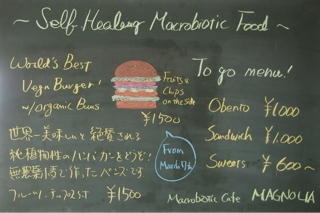 ~ Self-Healing Macrobiotic Food ~
World's Best
Vega Burger!
w/organic Buns
Fruits &
Chips
on the side
¥1500
世界一美味しいと絶賛される
純植物性のハンバーガーをどうぞ!
無農薬で作ったバンズです
¥1500
From
March
To go menu!
Obento ¥1000
Sandwich ¥1,000
Sweets ¥600~
Macrobiotic Cafe MAGNOLIA